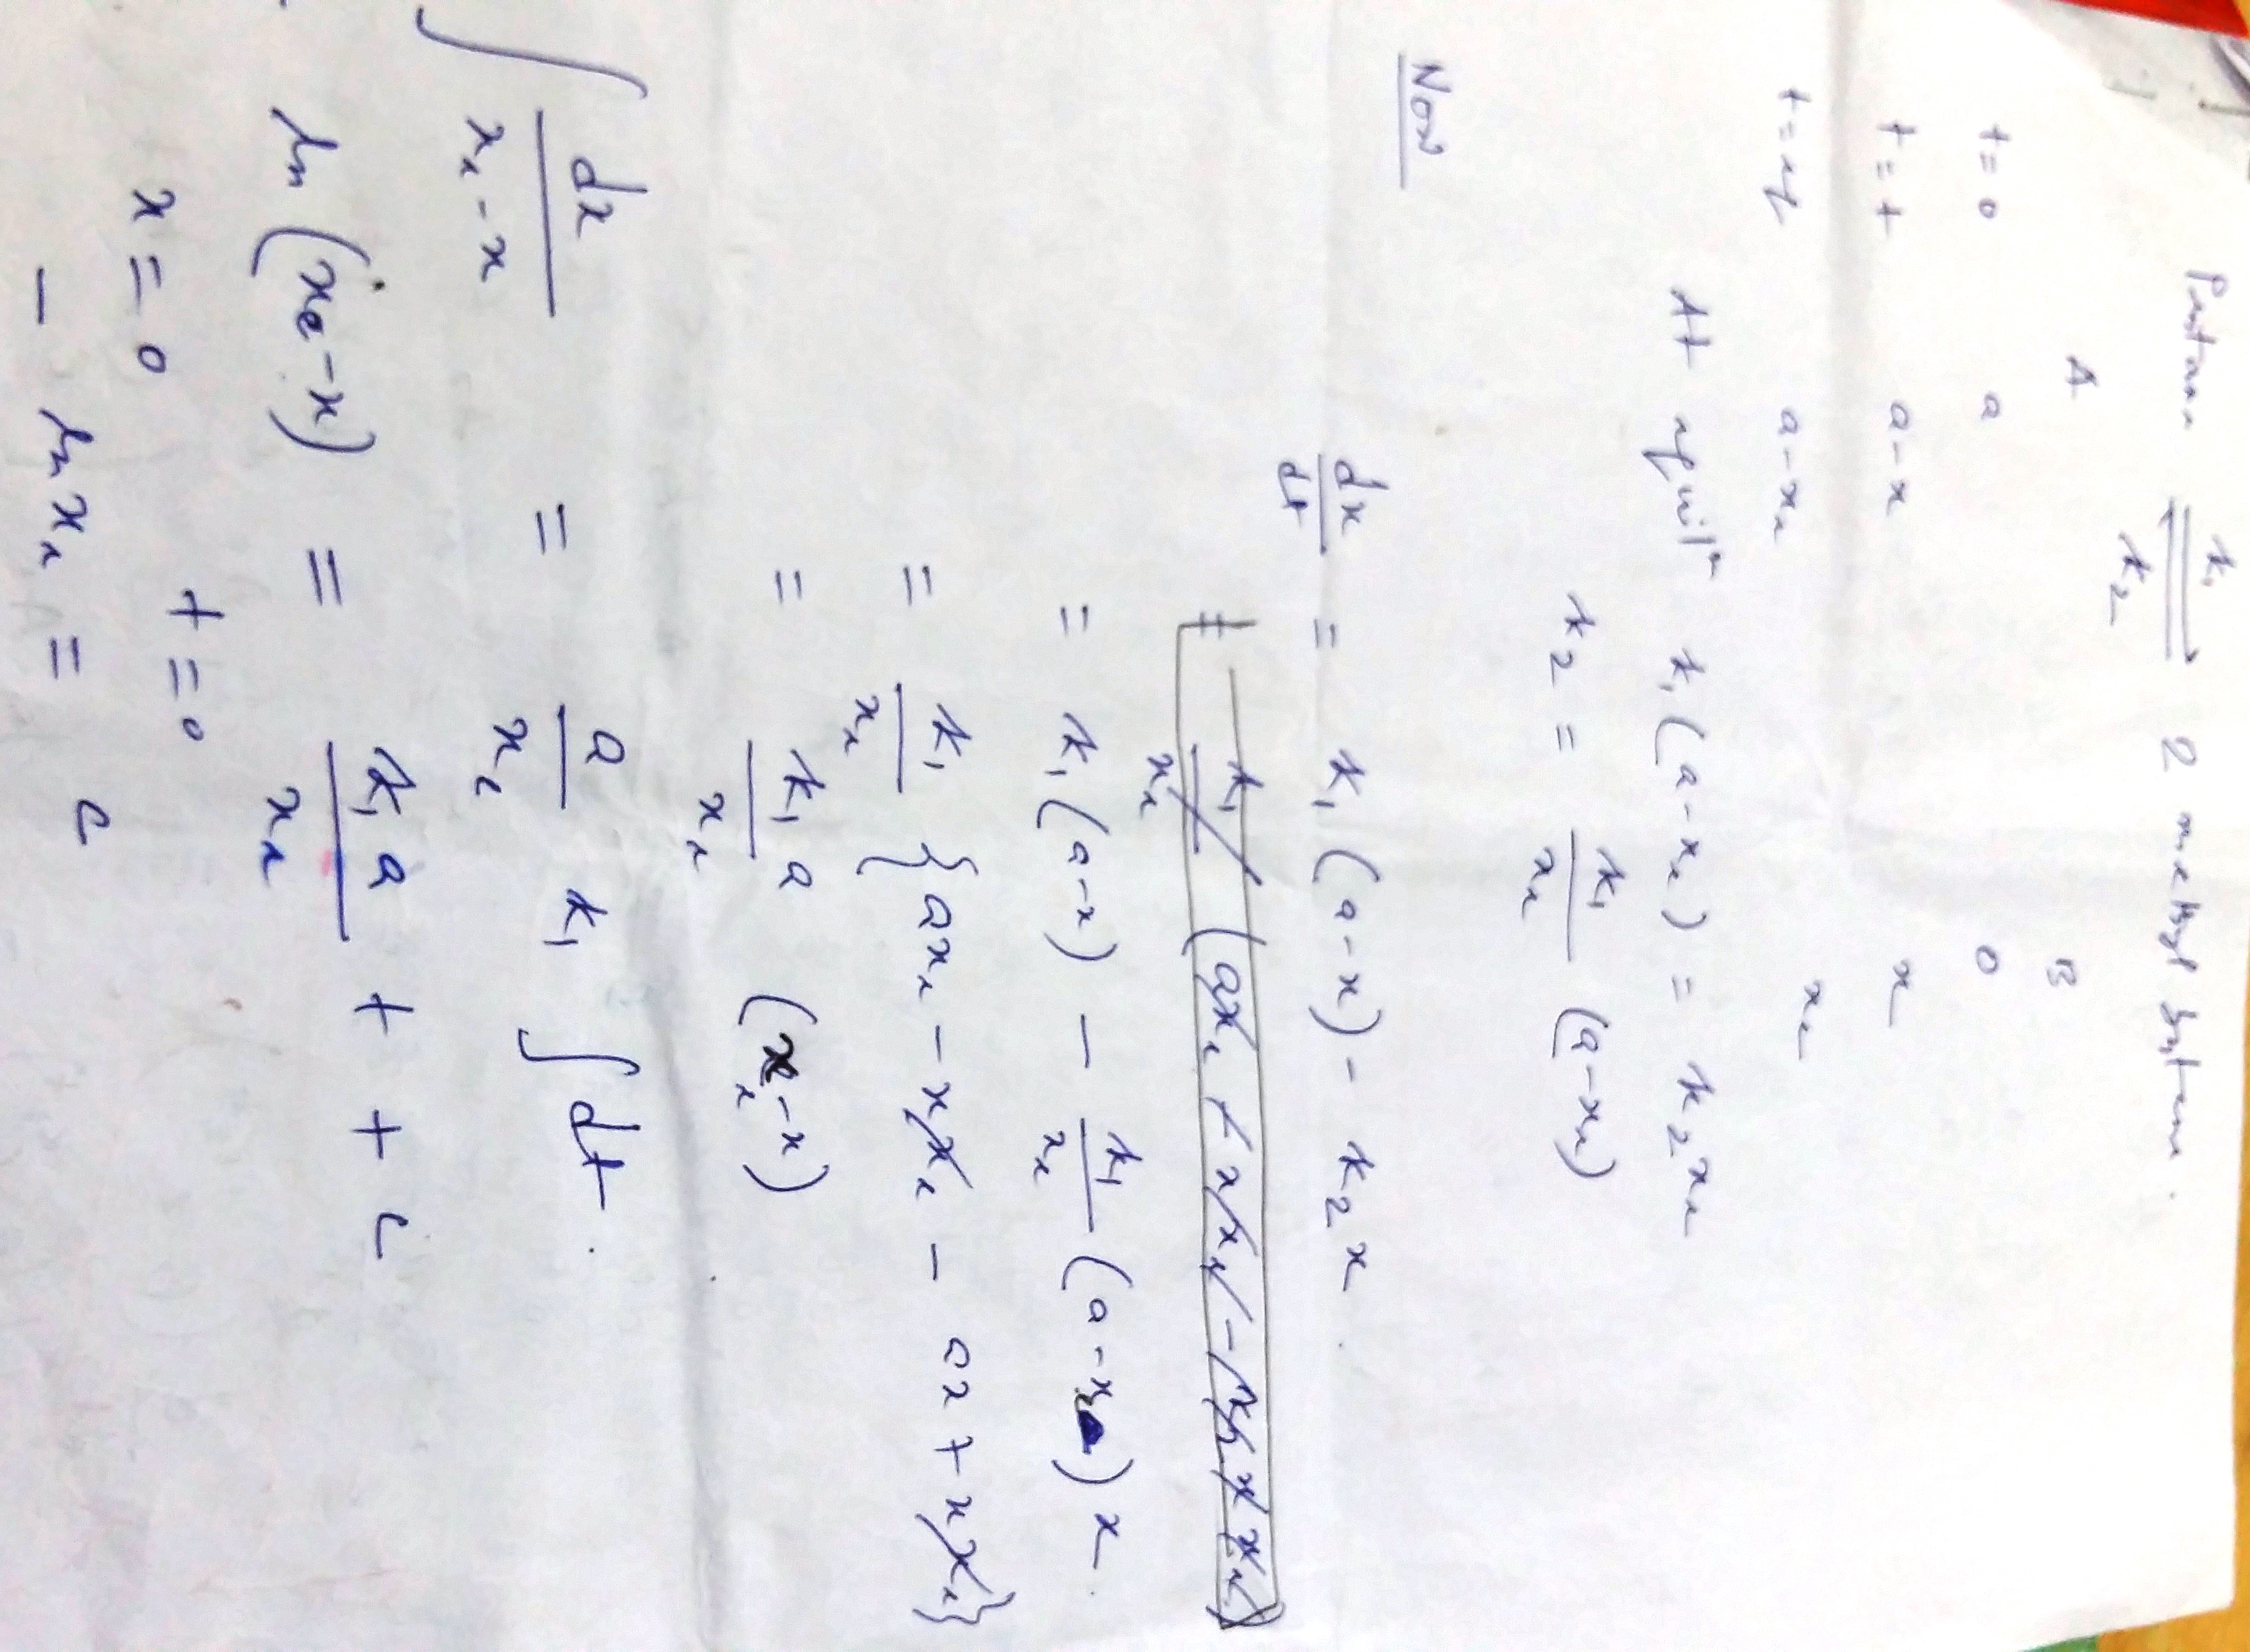 Pentane k₁ ⇌ k₂ 2 methyl butane.
A B
t=0 a 0
t=t a-x x
t=eq a-xₑ xₑ
At equilᵐ k₁(a-xₑ) = k₂xₑ
k₂ = k₁/xₑ (a-xₑ)
Now
dx/dt = k₁(a-x) - k₂x.
= k₁(a-x) - k₁/xₑ (a-x)x.
= k₁/xₑ {axₑ - xxₑ - ax + xxₑ}
= k₁a/xₑ (xₑ-x)
∫ dx/xₑ-x = a/xₑ k₁ ∫dt.
ln(xe-x) = k₁a/xₑ t + c
x=0 t=0
- ln xₑ = c